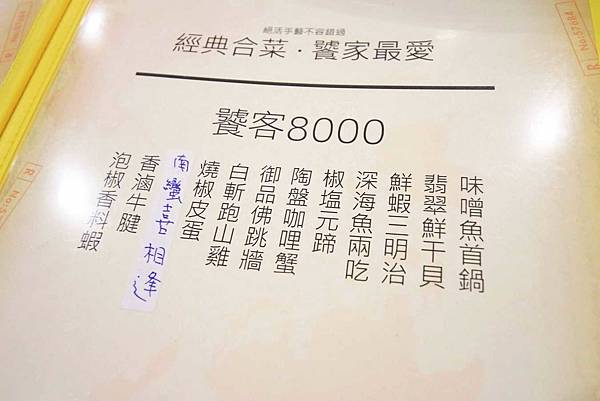 絕活手藝不容錯過
經典合菜·饕家最愛
饕客8000
味噌魚首鍋
翡翠鮮干貝
鮮蝦三明治
深海魚兩吃
椒塩元蹄
陶盤咖哩蟹
御品佛跳牆
白斬跑山雞
燒椒皮蛋
南蠻喜相逢
香滷牛腱
泡椒香料蝦
R No:57684
R No:5